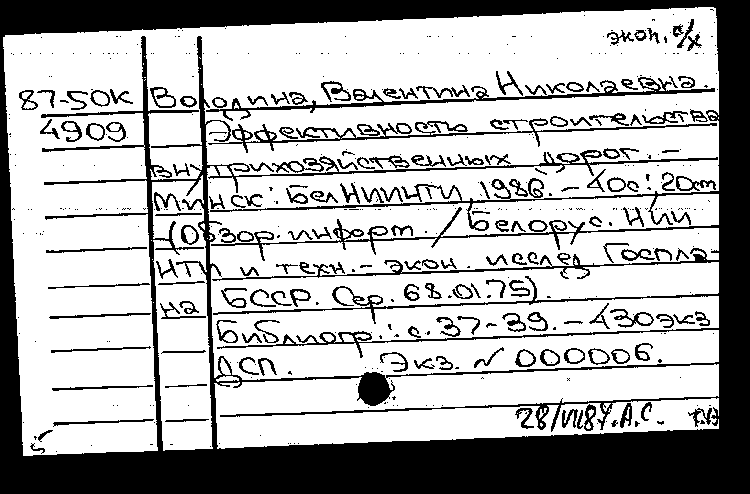 экон. с/х
87-50К Володина, Валентина Николаевна.
4909 Эффективность строительства
внутрихозяйственных дорог. –
Минск: БелНИИНТИ, 1986. – 40с.; 20см
–(Обзор. информ. / Белорус. НИИ
НТИ и техн.-экон. исслед. Госпла-
на БССР. Сер. 68.01.75).
Библиогр.: с. 37-39. – 430экз
ДСП. Экз. № 000006.
28/VII87. А.С.